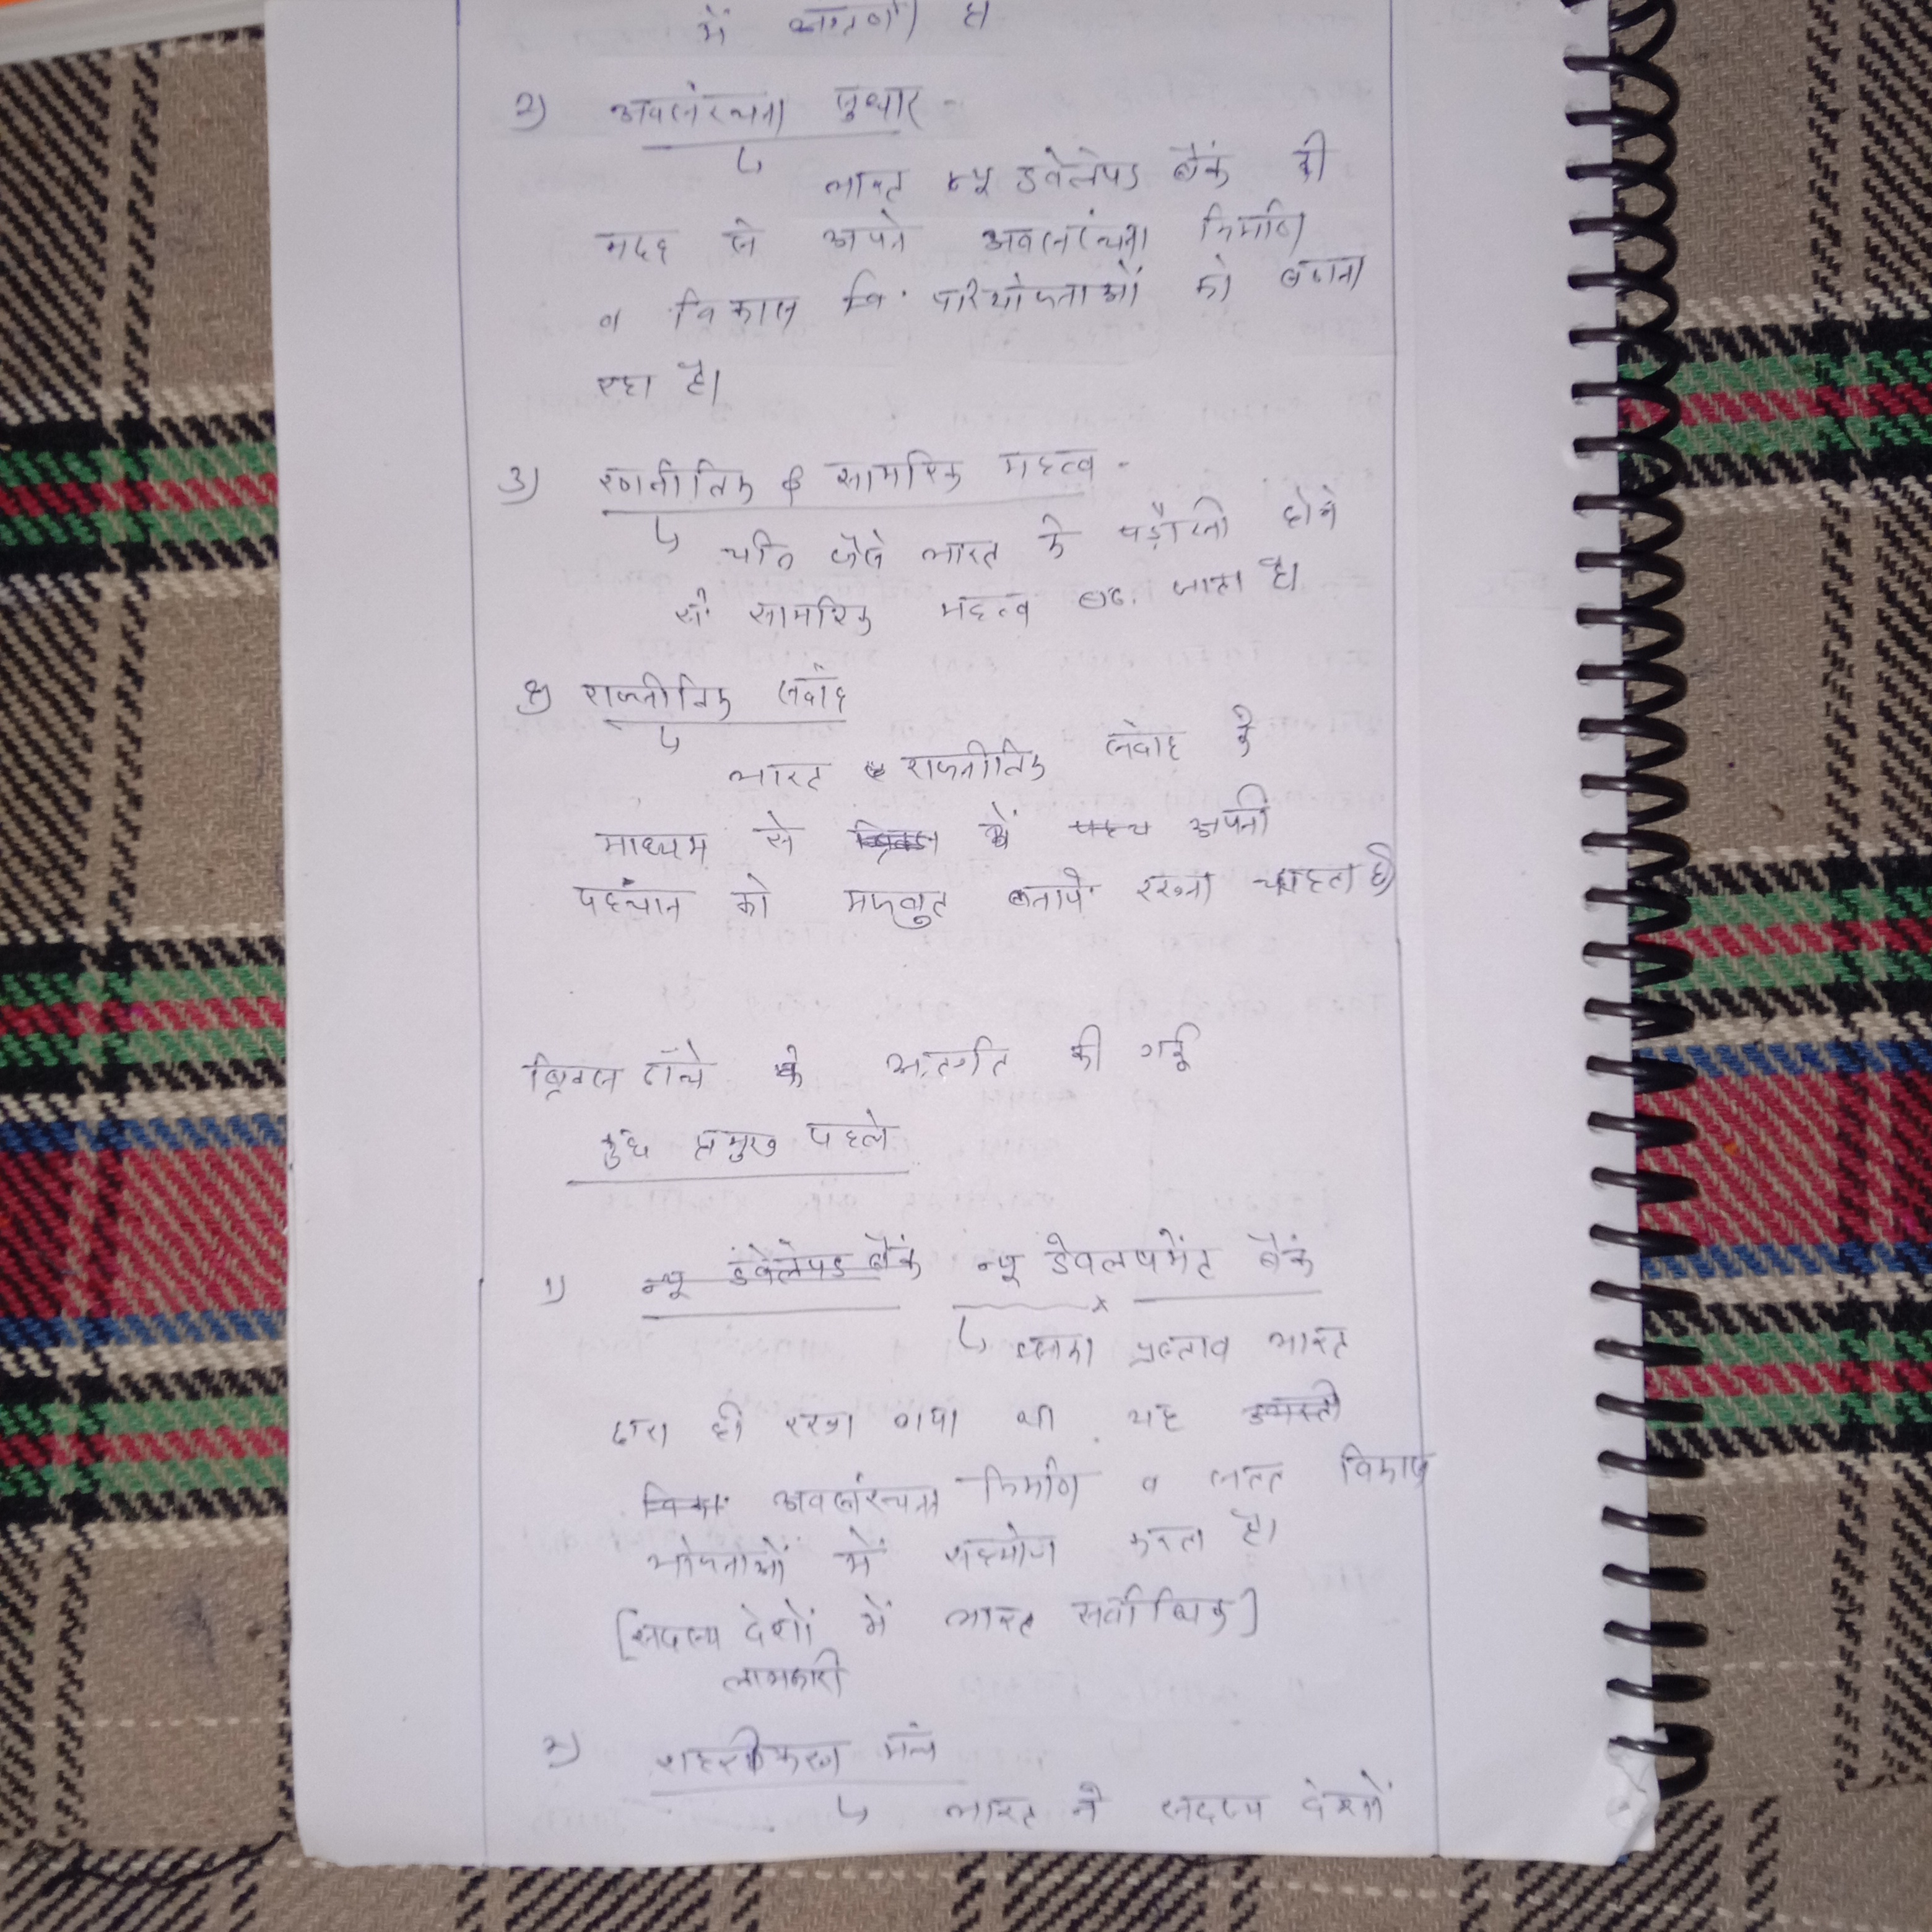 में
2) अवसंरचना सुधार -
↳ भारत न्यू डवेलेपड बैंक की
मदद से अपने अवसंरचना निर्माण
व विकास परियोजनाओं को बढ़ा
रहा है।
3) रणनीतिक व सामरिक महत्व -
↳ चीन जैसे भारत के पड़ौसी होने
से सामरिक महत्व बढ़ जाता है।
4) राजनीतिक संवाद
↳ भारत राजनीतिक संवाद के
माध्यम से में अपनी
पहचान को मजबुत बनाये रखना चाहता है
ब्रिक्स ढाँचे के अंतर्गत की गई
कुछ प्रमुख पहले
1) न्यू डेवेलेपड बैंक न्यू डेवलपमेंट बैंक
↳ इसका प्रस्ताव भारत
द्वारा ही रखा गया था यह
अवसंरचना निर्माण व सतत विकास
योजनाओं में सहयोग करता है।
[सदस्य देशों में भारत सर्वाधिक]
लाभकारी
2) शहरीकरण मंच
↳ भारत ने सदस्य देशों